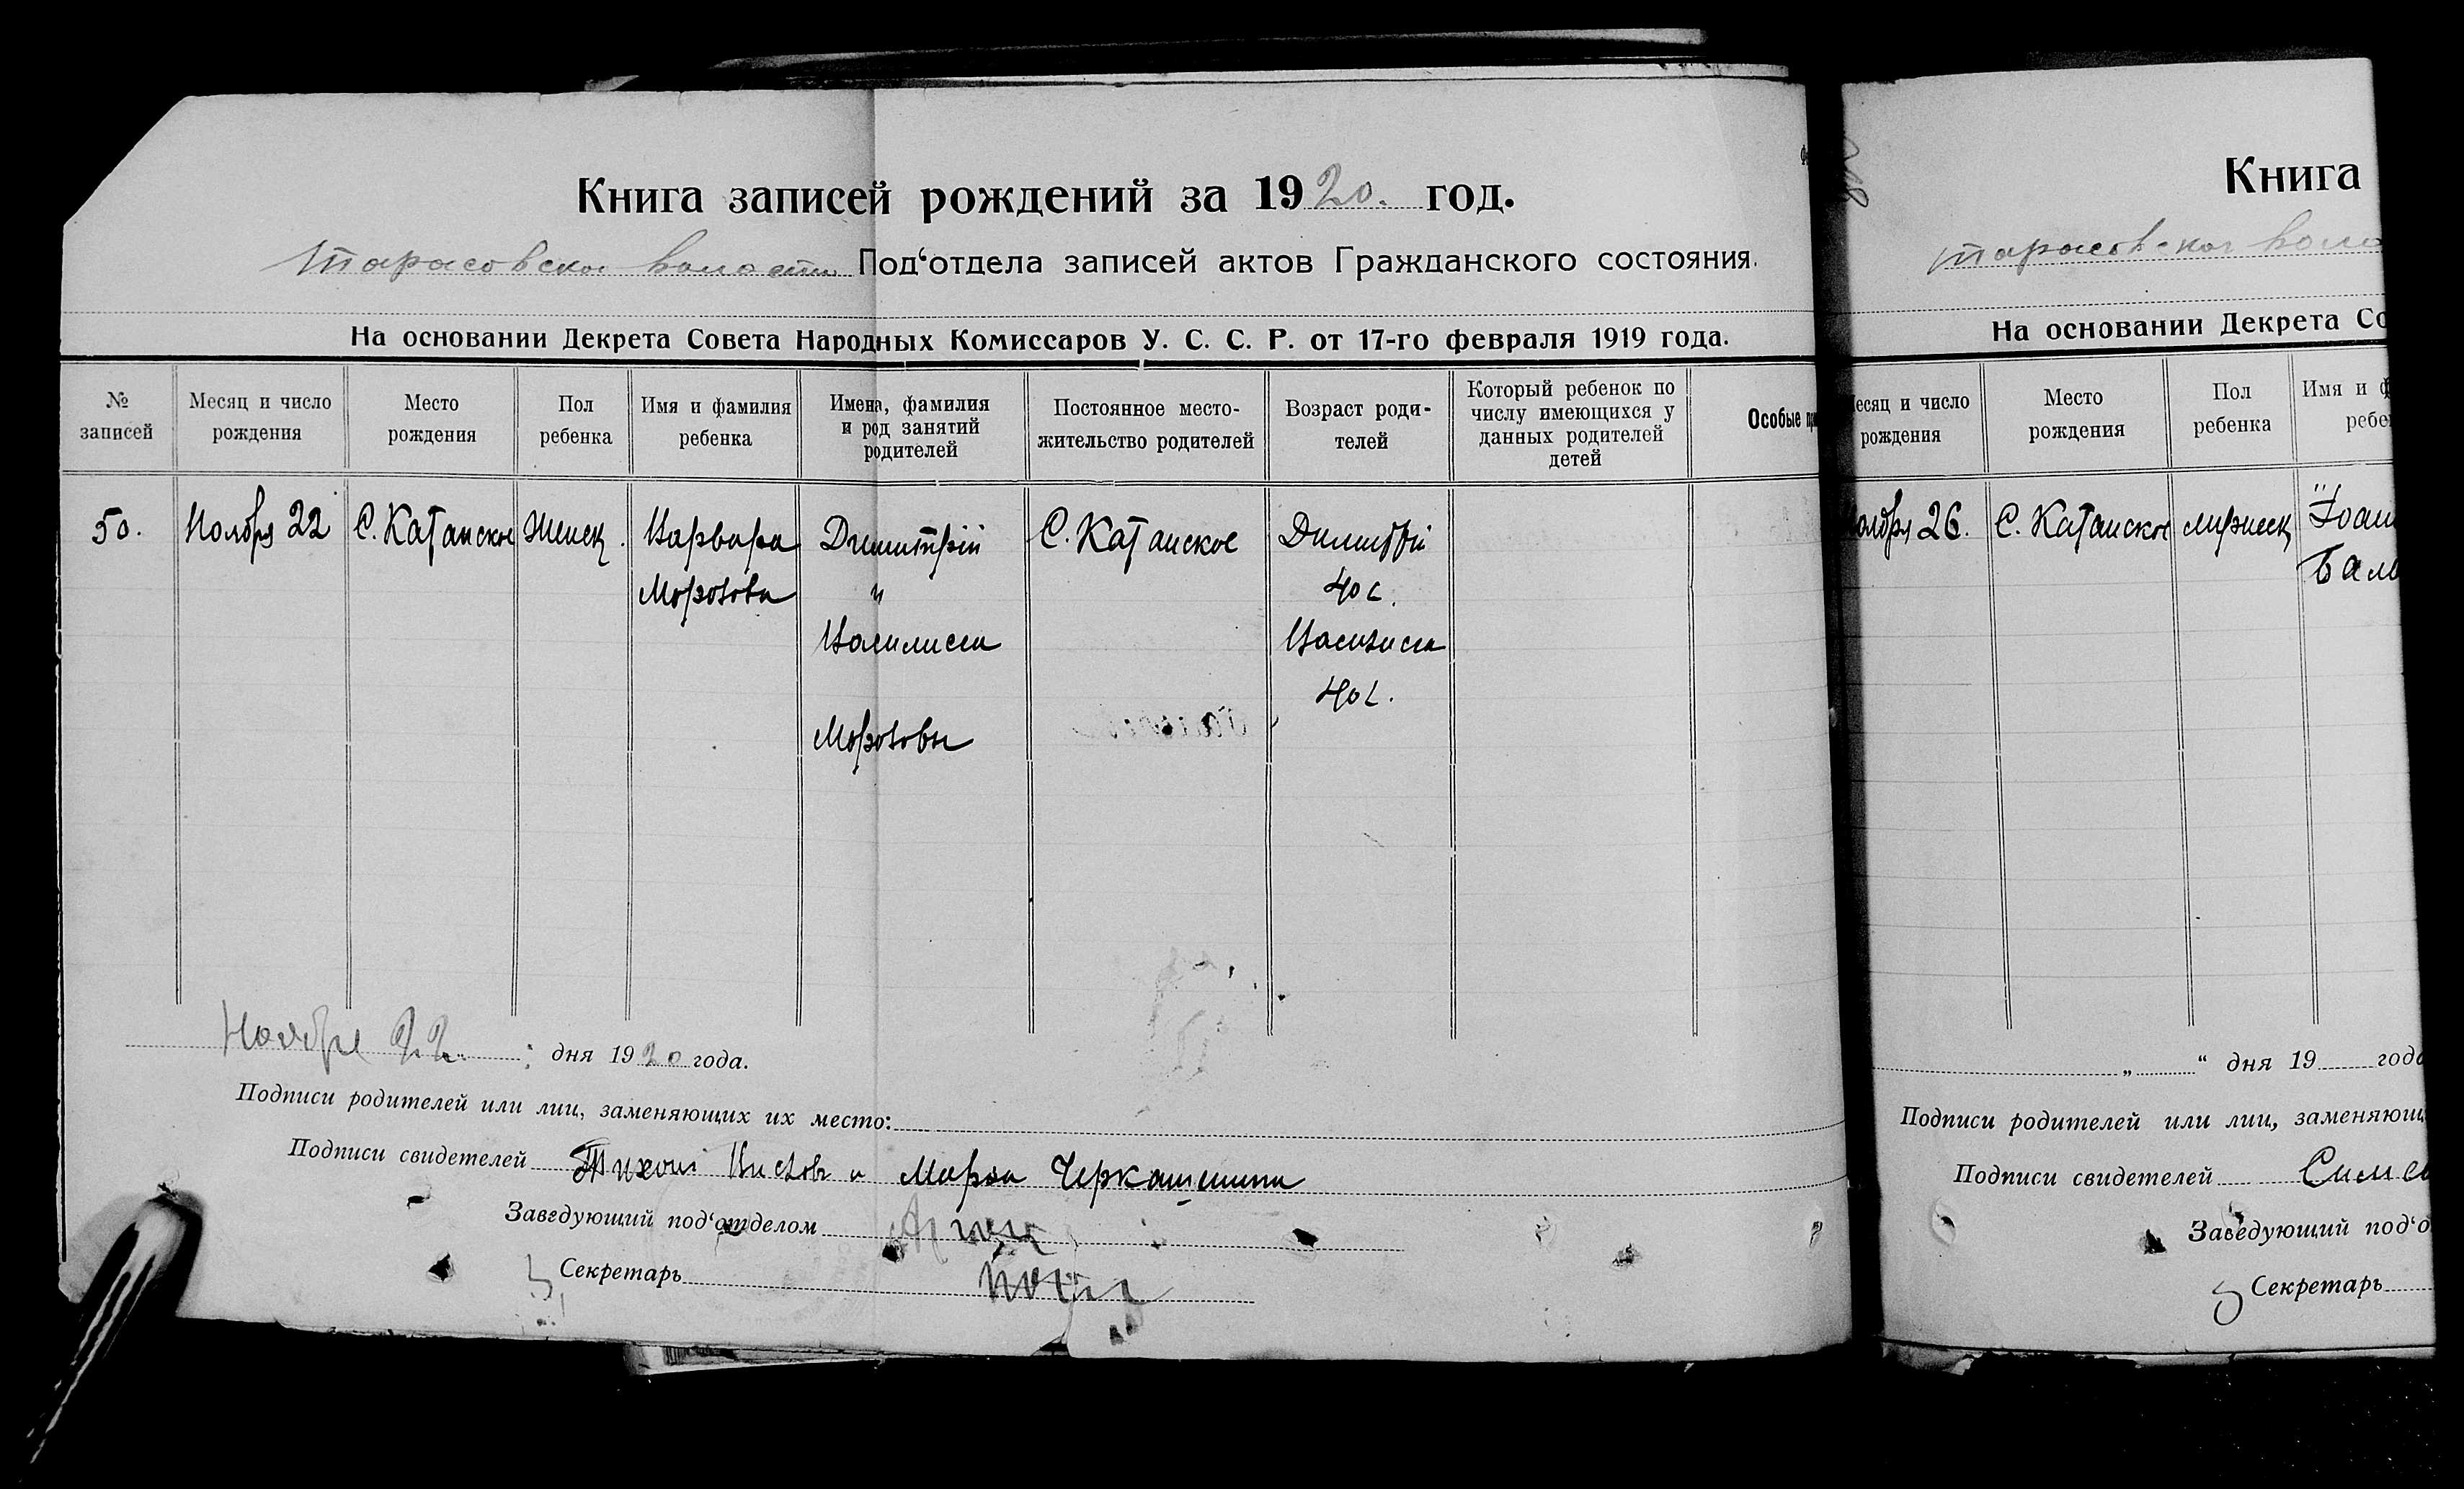 Книга записей рождений за 1920. год.
Тарасовской волости Под‘отдела записей актов Гражданского состояния.
На основании Декрета Совета Народных Комиссаров У. С. С. Р. от 17-го февраля 1919 года.
№ записей
Месяц и число рождения
Место рождения
Пол ребенка
Имя и фамилия ребенка
Имена, фамилия и род занятий родителей
Постоянное место-жительство родителей
Возраст роди-телей
Который ребенок по числу имеющихся у данных родителей детей
Особые
50.
Ноября 22
С. Катанское
Женск.
Варвара
Морозова
Димитрій
и
Василисса
Морозовы
С. Катанское
Димитрій
40 л.
Василисса
40 л.
Ноября 22 дня 1920 года.
Подписи родителей или лиц, заменяющих их место:
Подписи свидетелей Тихон и Марфа Черкашенины
Заведующий под‘отделом
Секретарь
Книга
Тарасовской воло
На основании Декрета Со
есяц и число рождения
Место рождения
Пол ребенка
Имя и ф
ребе
оября 26.
С. Катанское
мужеск
Іоан
„ “ дня 19 года
Подписи родителей или лиц, заменяющ
Подписи свидетелей
Заведующий под‘о
Секретарь